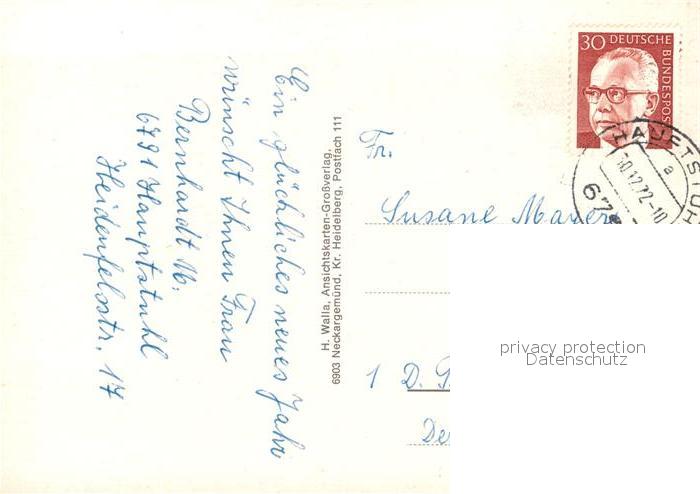 Ein glückliches neues Jahr
wünscht Ihnen Frau
Bernhardt M.
6791 Hauptstuhl
Heidenfelsstr. 17
H. Walla, Ansichtskarten-Großverlag,
6903 Neckargemünd, Kr. Heidelberg, Postfach 111
30 DEUTSCHE
BUNDESPOST
HAUPTSTUH
a
30.12.72-10
679
Fr.
Susane Mayer
1 D.
privacy protection
Datenschutz